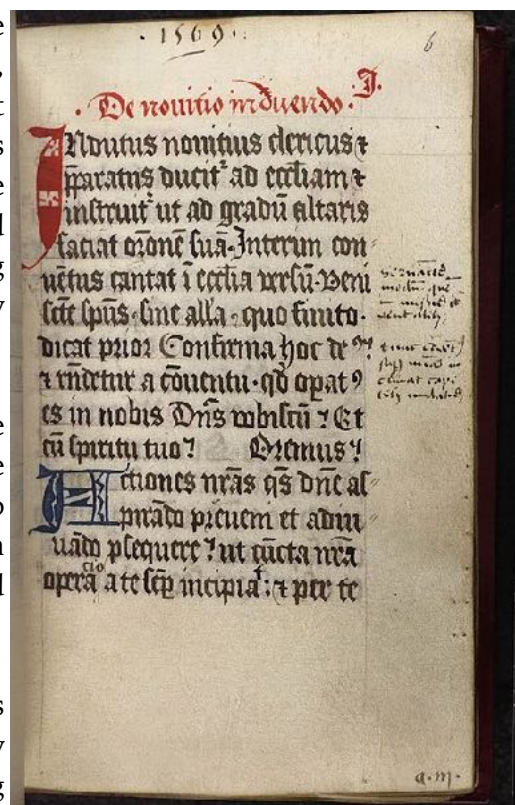 · 1569 ·
6
· De nouitio induendo · I.
INdutus nouitius clericus ⁊
p̄paratus ducit᷑ ad eccl̄iam ⁊
instruit᷑ ut ad gradū altaris
faciat or̄onē suā. Interim con
uētus cantat ī eccl̄ia versū. Veni
sc̄te sp̄us. sine all̄a. quo finito.
dicat prior Confirma hoc deꝰ
⁊ rn̄detur a cōuentu. qd̄ opatꝰ
es in nobis Dn̄s vobiscū ⁊ Et
cū spiritu tuo ⁊ Oremus ⁊
Actiones nr̄as qs̄ dn̄e as
pirādo preueni et adiu
uādo ꝓsequere ⁊ ut cūcta nr̄a
operācio a te semꝑ incipiat : ⁊ per te
a · m ·